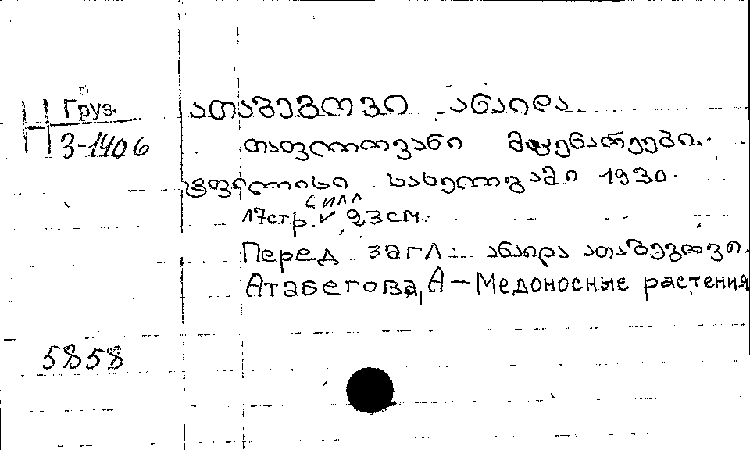 Н Груз.
3-1406
ათაბეგოვი ანაიდა
თაფლოოვანი მცენარეები.
ტფილისი სახელგამი 1930.
17стр. с илл 23см.
Перед загл. ანაიდა ათაბეგოვი.
Атабегова, А — Медоносные растения
5858